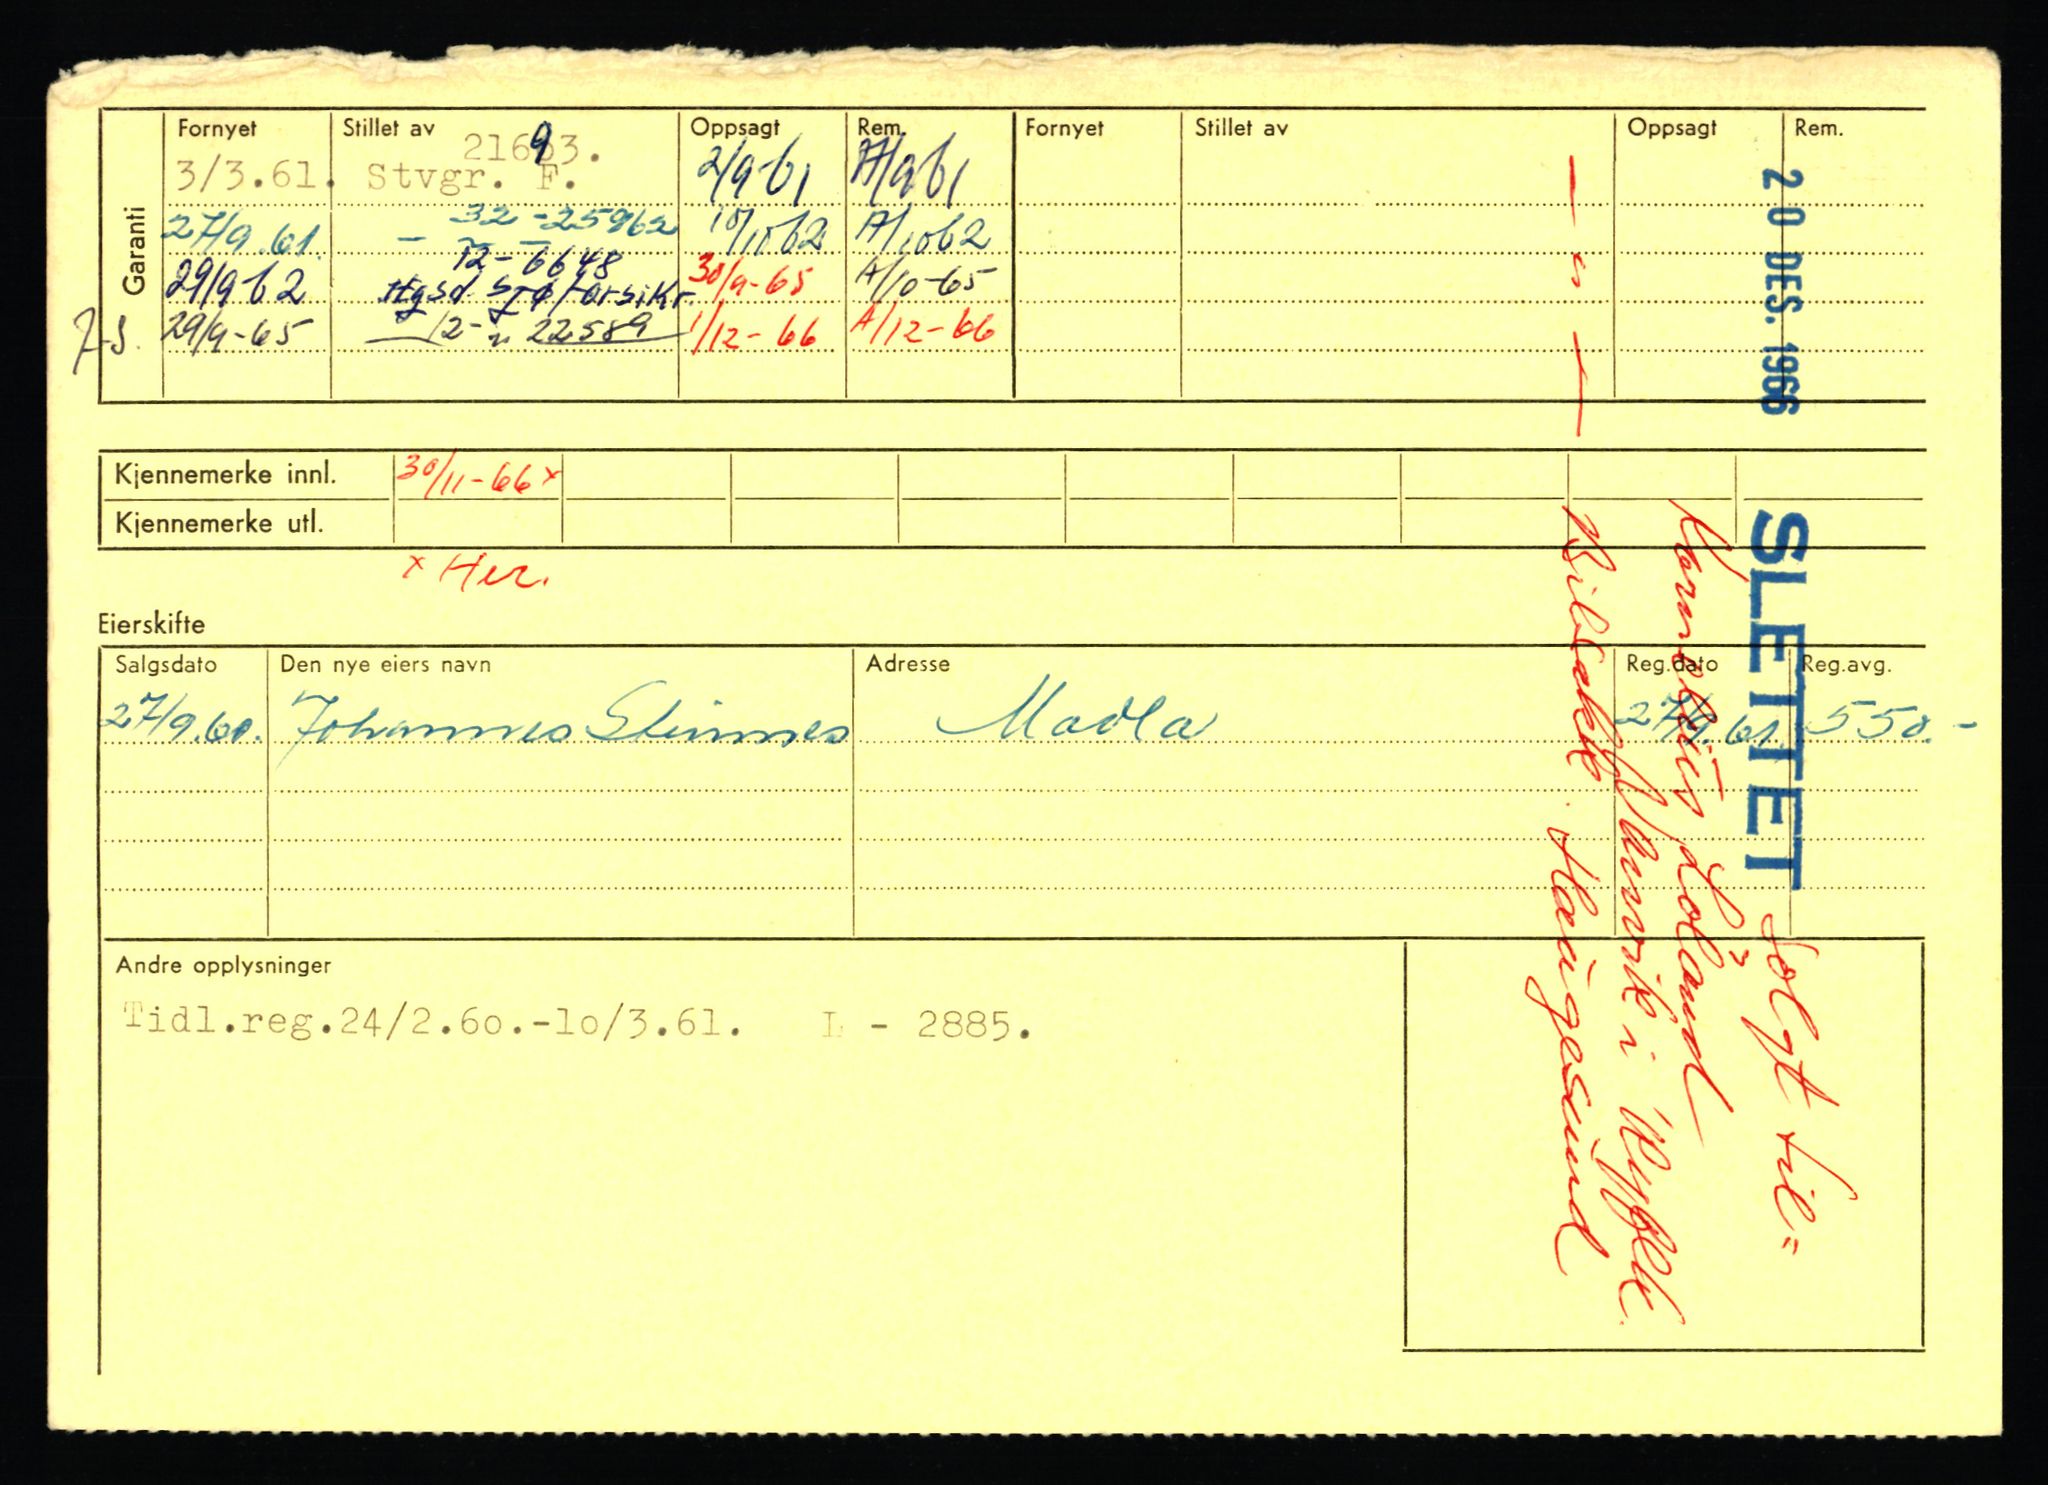 Garanti
Fornyet Stillet av Oppsagt Rem. Fornyet Stillet av Oppsagt Rem.
21693.
3/3.61. Stvgr. F. 2/9-61 A/9 61
27/9.61. - 32 - 25962 10/10 62 A/10 62
12 - 6648
29/9 62 Hgsd Sjøforsikr. 30/9-65 A/10-65
J.S. 29/9-65 12 - " 22589 1/12-66 A/12-66
Kjennemerke innl. 30/11-66 x
Kjennemerke utl.
x Her.
Eierskifte
Salgsdato Den nye eiers navn Adresse Reg.dato Reg.avg.
27/9.60. Johannes Steinnes Madla 27/9.61. 550.-
Andre opplysninger
Tidl.reg.24/2.60.-10/3.61. L - 2885.
20 DES. 1966
SLETTET
Solgt til:
Kornelius Loland
i
— " —
Haugesund